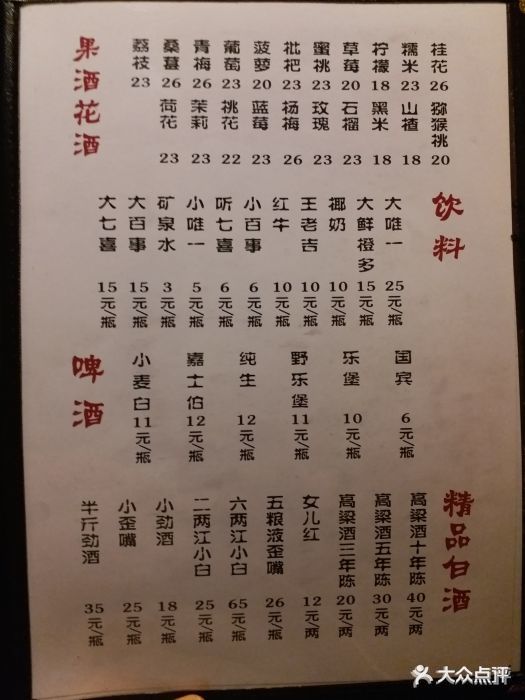 果酒花酒
桂花 26
糯米 23
柠檬 18
草莓 20
蜜桃 23
枇杷 23
菠萝 20
葡萄 23
青梅 26
桑葚 26
荔枝 23
猕猴桃 20
山楂 18
黑米 18
石榴 23
玫瑰 23
杨梅 26
蓝莓 23
桃花 22
茉莉 23
荷花 23
饮料
大唯一 25元/瓶
大鲜橙多 15元/瓶
椰奶 10元/瓶
王老吉 10元/瓶
红牛 10元/瓶
小百事 6元/瓶
听七喜 6元/瓶
小唯一 5元/瓶
矿泉水 3元/瓶
大百事 15元/瓶
大七喜 15元/瓶
啤酒
国宾 6元/瓶
乐堡 10元/瓶
野乐堡 11元/瓶
纯生 12元/瓶
嘉士伯 12元/瓶
小麦白 11元/瓶
精品白酒
高梁酒十年陈 40元/两
高梁酒五年陈 30元/两
高梁酒三年陈 20元/两
女儿红 12元/两
五粮液歪嘴 26元/瓶
六两江小白 65元/瓶
二两江小白 25元/瓶
小劲酒 18元/瓶
小歪嘴 25元/瓶
半斤劲酒 35元/瓶
大众点评